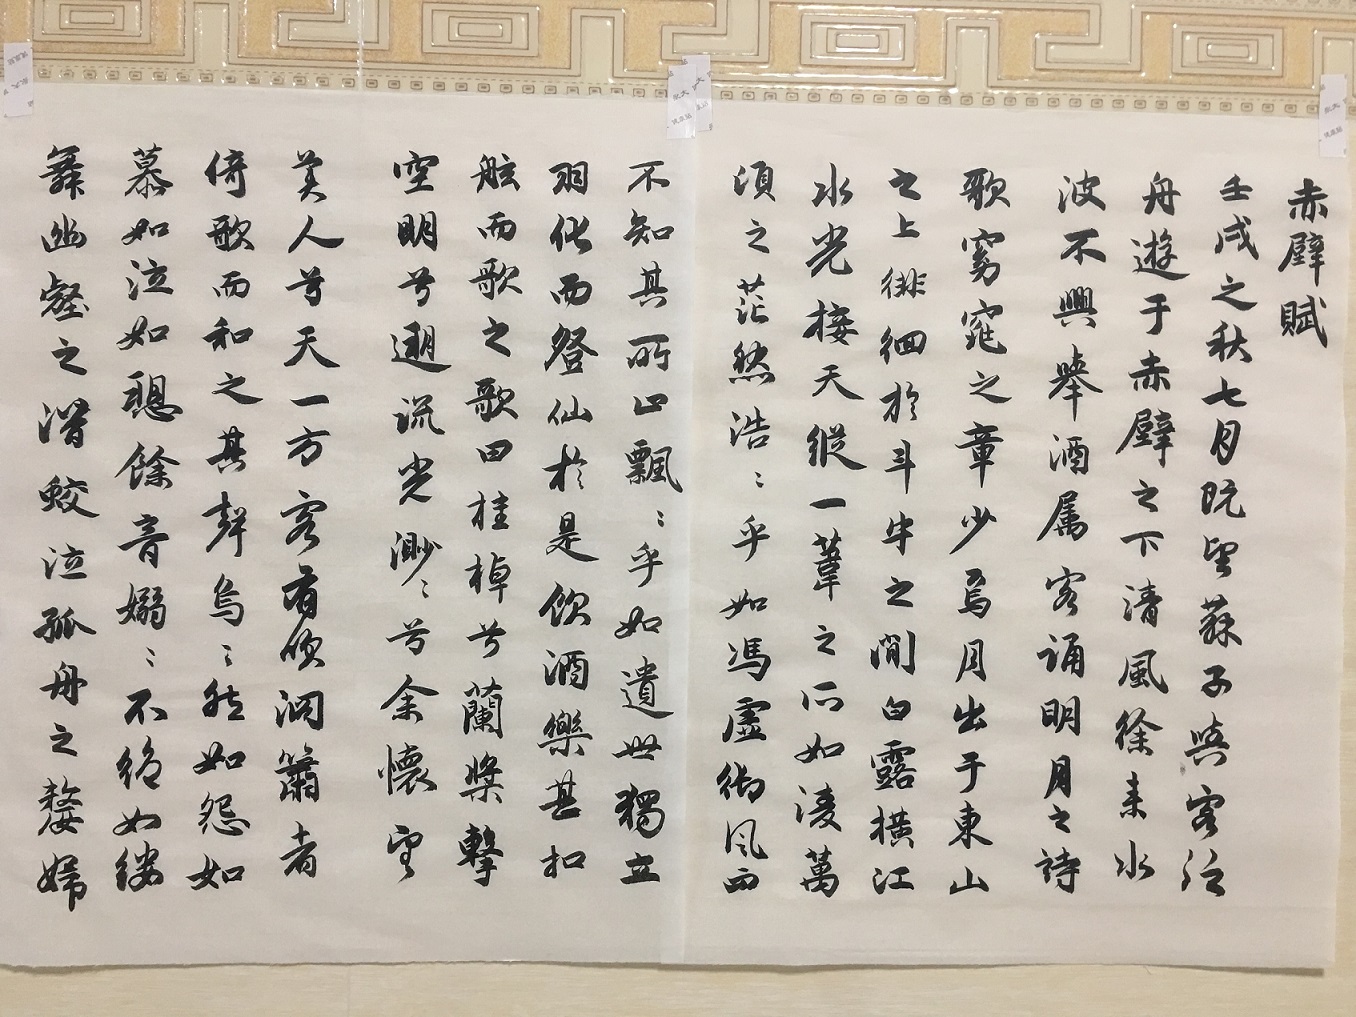 赤壁賦
壬戌之秋七月既望蘇子與客泛
舟遊于赤壁之下清風徐来水
波不興舉酒属客誦明月之詩
歌窈窕之章少焉月出于東山
之上徘徊於斗牛之間白露橫江
水光接天縱一葦之所如凌萬
頃之茫然浩〻乎如馮虛御風而
不知其所止飄〻乎如遺世獨立
羽化而登仙於是飲酒樂甚扣
舷而歌之歌曰桂棹兮蘭槳擊
空明兮遡流光渺〻兮余懷望
美人兮天一方客有吹洞簫者
倚歌而和之其聲烏〻然如怨如
慕如泣如聴餘音嫋〻不絕如縷
舞幽壑之潛蛟泣孤舟之嫠婦